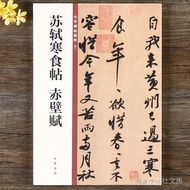 苏轼寒食帖 赤壁赋
自我来黄州已過三寒
食年〻欲惜春〻去不
容惜今年又苦雨兩月秋